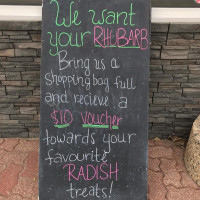 We want
your RHUBARB
Bring us a
shopping bag full
and recieve a
$10 voucher
towards your
favourite
RADISH
treats!